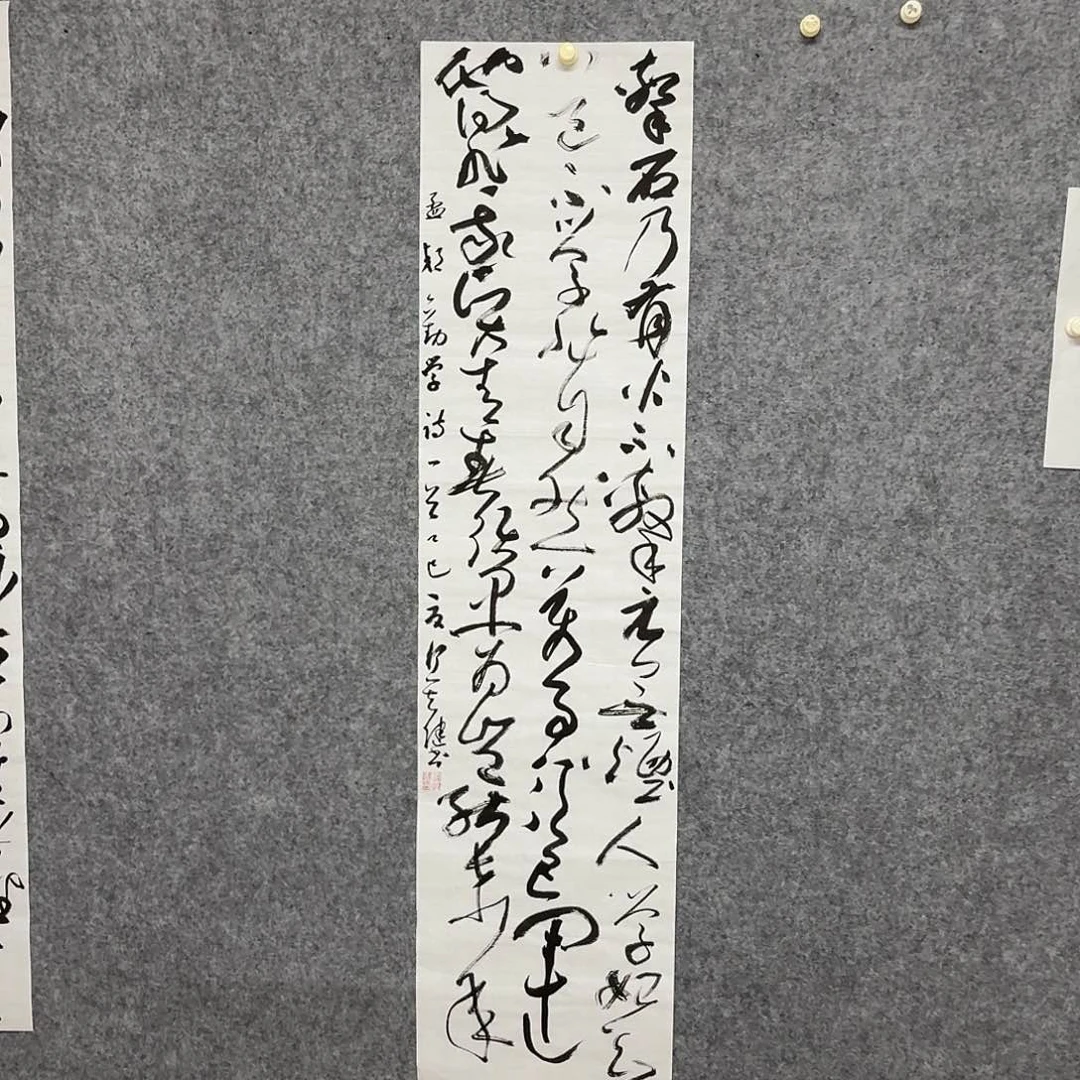 擊石乃有火不擊元無煙人学始知
道不学非自然萬事須己運
他得非我賢青春須早為豈能長少年
孟郊勸学诗一首乙巳